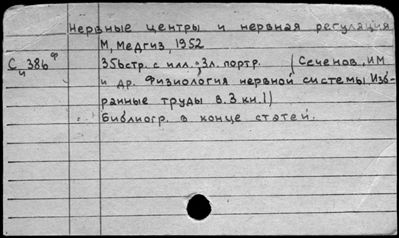 Нервные центры и нервная регуляция
М, Медгиз, 1952
С ч 386 ф 356стр. с илл.; 3л. портр. (Сеченов, ИМ
и др. Физиология нервной системы Изб-
ранные труды в.3 кн.1)
Библиогр. в конце статей.